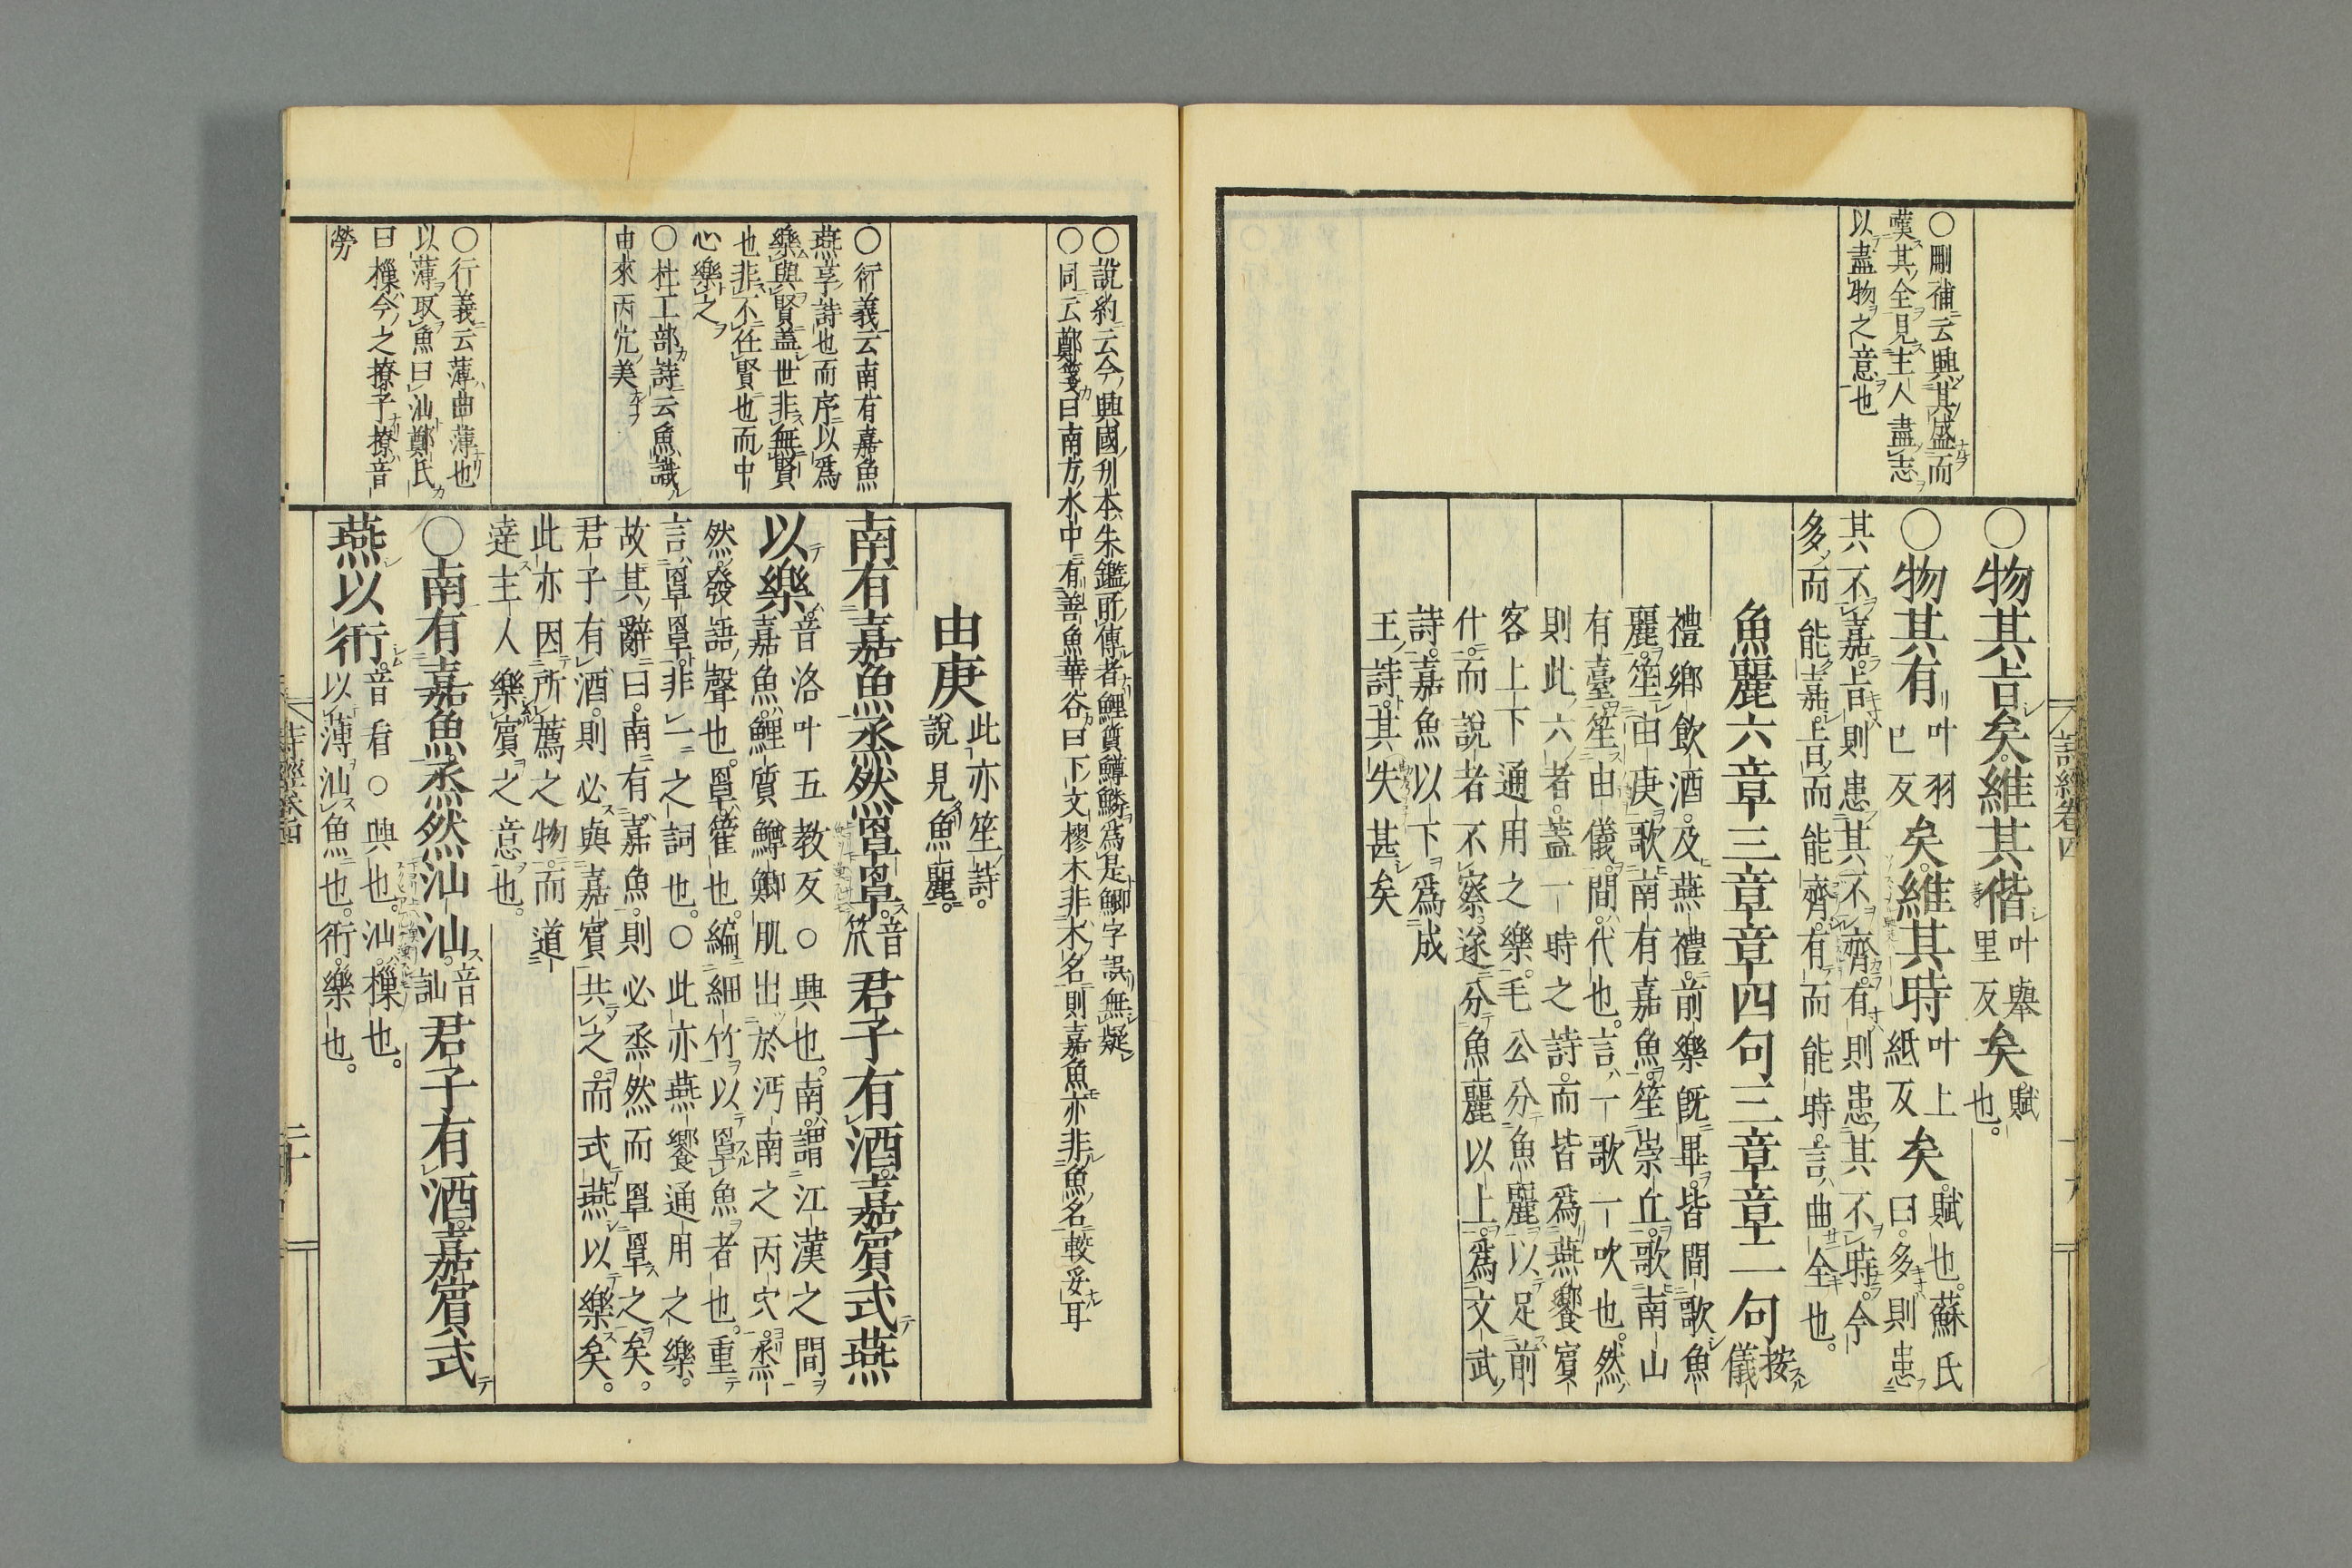 ○刪補云興其盛而
嘆其全見主人盡志
以盡物之意也
○物其旨矣維其偕叶舉里反矣賦也。
○物其有叶羽已反矣。維其時叶上紙反矣。賦也。蘇氏曰。多則患
其不嘉。旨則患其不齊。有則患其不時。今
多而能嘉。旨而能齊。有而能時。言曲全也。
魚麗六章三章章四句三章章二句按儀
禮鄉飲酒。及燕禮。前樂既畢。皆間歌魚
麗。笙由庚。歌南有嘉魚。笙崇丘。歌南山
有臺。笙由儀。間。代也。言一歌一吹也。然
則此六者。蓋一時之詩。而皆爲燕饗賓
客上下通用之樂。毛公分魚麗以足前
什。而說者不察。遂分魚麗以上。爲文武
詩。嘉魚以下爲成
王詩。其失甚矣
○說約云今興國刋本朱鑑所傳者鯉質鱒鱗爲是鯽字誤無疑
○同云鄭箋曰南方水中有善魚華谷曰下文樛木非木名則嘉魚亦非魚名較妥耳
由庚此亦笙詩。說見魚麗。
○衍義云南有嘉魚
燕享詩也而序以爲
樂與賢蓋世非無賢
也非不任賢也而中
心樂之
○杜工部詩云魚識
由來丙穴美
南有嘉魚烝然罩罩。音笊君子有酒。嘉賓式燕
以樂。音洛叶五教反○興也。南。謂江漢之間
嘉魚。鯉質鱒鯽肌出於沔南之丙穴。烝
然。發語聲也。罩。篧也。編細竹以罩魚者也。重
言罩罩。非一之詞也。○此亦燕饗通用之樂。
故其辭曰。南有嘉魚。則必烝然而罩罩之矣。
君子有酒。則必與嘉賓共之。而式燕以樂矣。
此亦因所薦之物。而道
達主人樂賓之意也。
○行義云薄曲薄也
以薄取魚曰汕鄭氏
曰樔今之撩子撩音
勞
○南有嘉魚烝然汕汕。音訕君子有酒。嘉賓式
燕以衎。音看○興也。汕。樔也。
以薄汕魚也。衎。樂也。